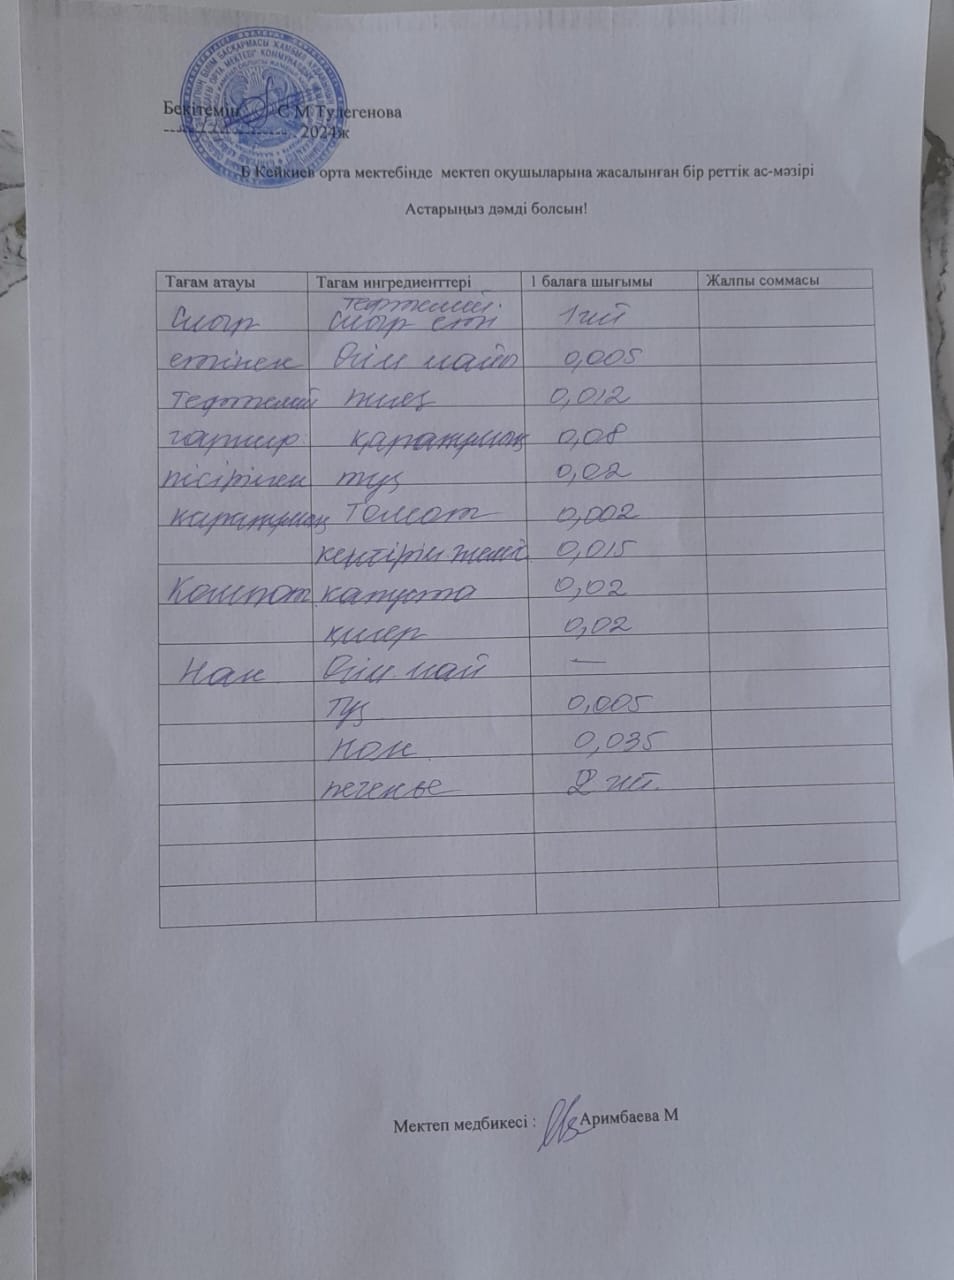 Бекітемін С М Тулегенова
--------------------- 2024ж
Б Кейкиев орта мектебінде мектеп оқушыларына жасалынған бір реттік ас-мәзірі
Астарыңыз дәмді болсын!
Тағам атауы Тағам ингредиенттері 1 балаға шығымы Жалпы соммасы
тефтелий
Сиыр сиыр еті 1шт
етінен өсім майы 0,005
тефтелий пияз 0,012
гарнир қарақұмық 0,08
пісірілген тұз 0,02
қарақұмық Томат 0,002
кептірілген 0,015
Компот капуста 0,02
қигер 0,02
Нан Өсім май —
Тұз 0,005
нан 0,035
печенье 2 шт.
Мектеп медбикесі : Аримбаева М